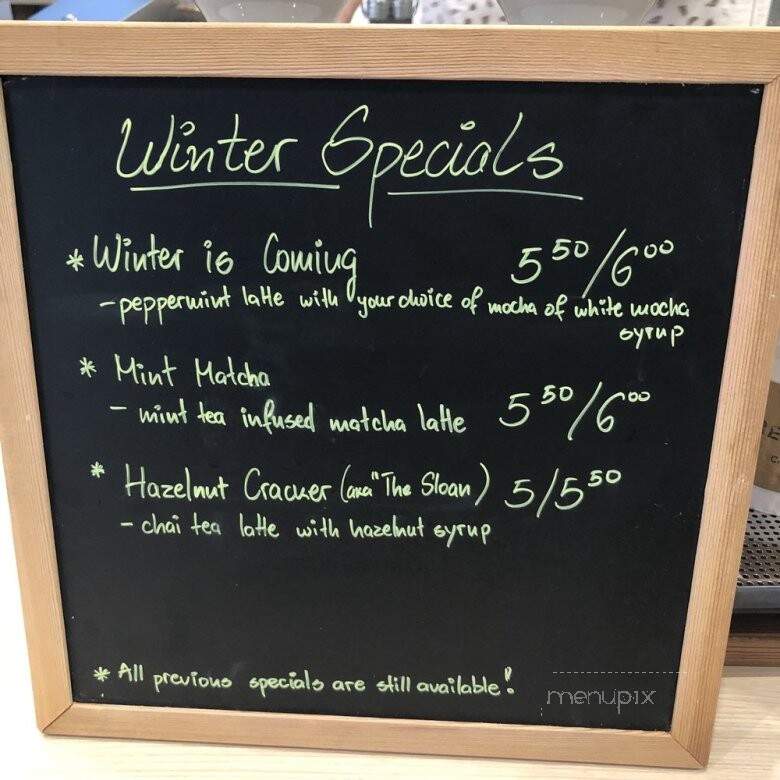 Winter Specials
* Winter is Coming 5 50/6 00
- peppermint latte with your choice of mocha of white mocha
syrup
* Mint Matcha
- mint tea infused matcha latte 5 50/6 00
* Hazelnut Cracker (aka "The Sloan) 5/5 50
- chai tea latte with hazelnut syrup
* All previous specials are still available!
menupix